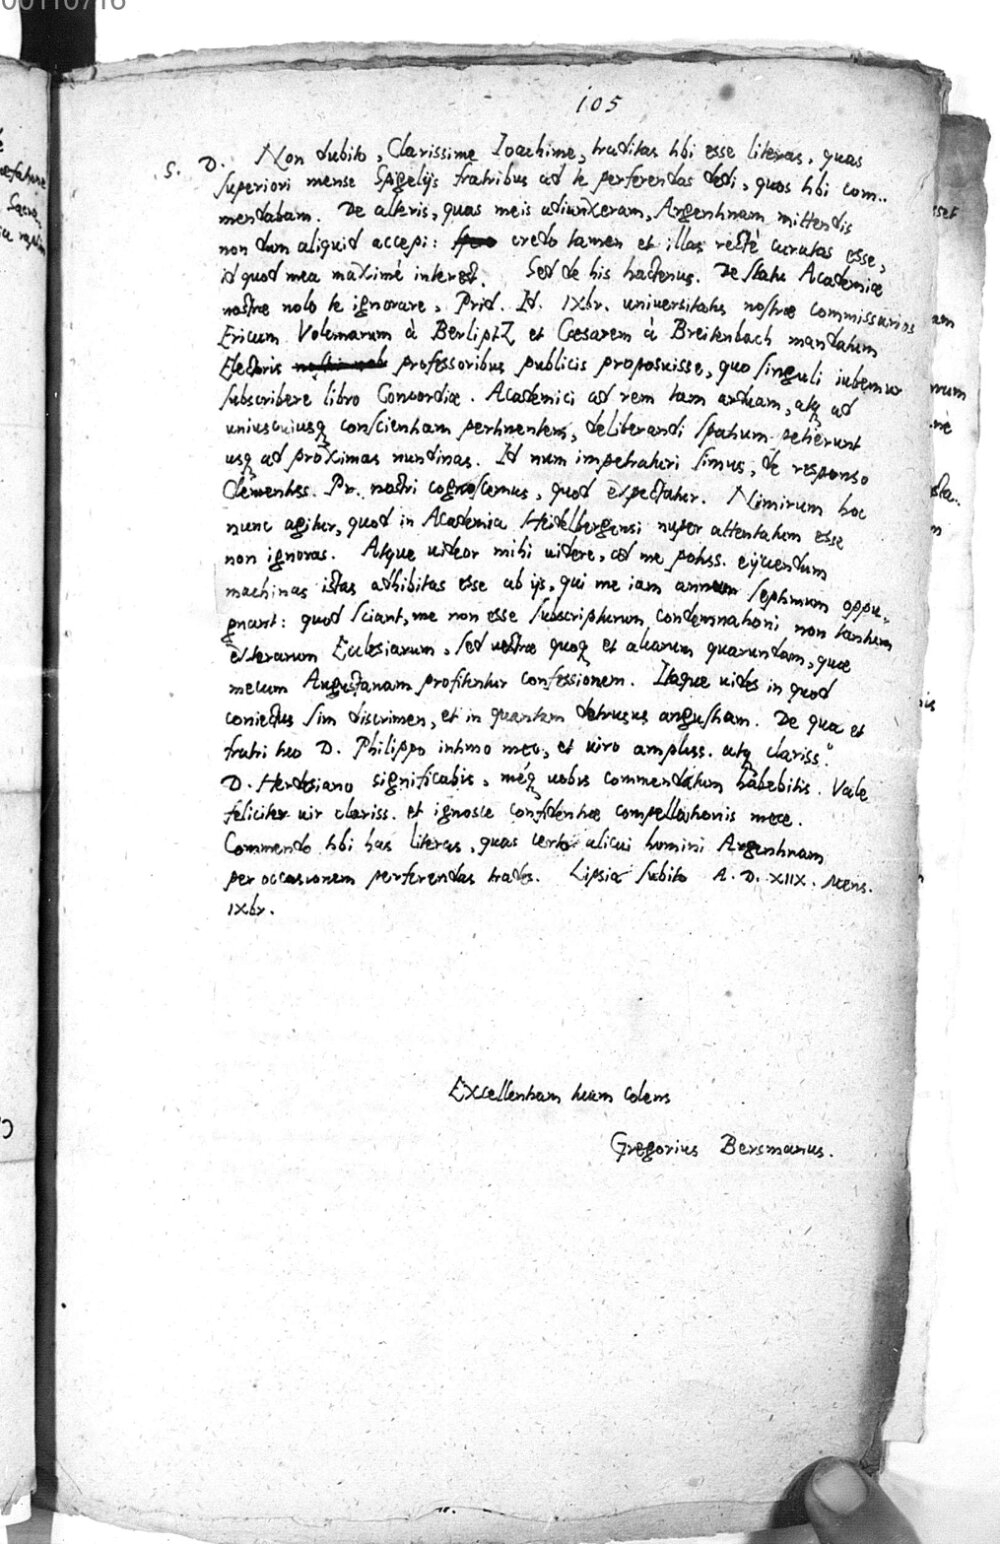 105
S. D. Non dubito, Clarissime Ioachime, traditas tibi esse literas, quas
superiori mense Spigelijs fratribus ad te perferendas dedi, quos tibi com-
mendabam. De alteris, quas meis adiunxeram, Argentinam mittendis
non dum aliquid accepi: spero credo tamen et illas rectè curatas esse,
id quod mea maximè interest. Sed de his hactenus. De statu Academiæ
nostræ nolo te ignorare, Prid. Id. IXbr. uniuersitatis nostræ commissarios
Ericum Volcmarum à Berliptz et Cæsarem à Breitenbach mandatum
Electoris professoribus publicis proposuisse, quo singuli iubemur
subscribere libro Concordiæ. Academici ad rem tam arduam, atq ad
uniuscuiusq conscientiam pertinentem, deliberandi spatium petierunt
usq ad proximas nundinas. Id num impetraturi simus, de responso
Clementiss. Pr. nostri cognoscemus, quod expectatur. Nimirum hoc
nunc agitur, quod in Academia Heidelbergensi nuper attentatum esse
non ignoras. Atque uideor mihi uidere, ad me potiss. eijciendum
machinas istas adhibitas esse ab ijs, qui me iam annum septimum oppu-
gnant: quod sciant, me non esse subscripturum condemnationi non tantum
exterarum Ecclesiarum, sed uestræ quoq et aliarum quarundam, quæ
mecum Augustanam profitentur confessionem. Itaque uides in quod
coniectus sim discrimen, et in quantam detrusus angustiam. De qua et
fratri tuo D. Philippo intimo meo, et uiro ampliss. atq clariss.
D. Herdesiano significabis, méq uobis commendatum habebitis. Vale
feliciter uir clariss. et ignosce confidentiæ compellationis meæ.
Commendo tibi has literas, quas certo alicui homini Argentinam
per occasionem perferendas trades. Lipsiæ subito A. D. XIIX. Mens.
IXbr.
Excellentiam tuam colens
Gregorius Bersmanus.